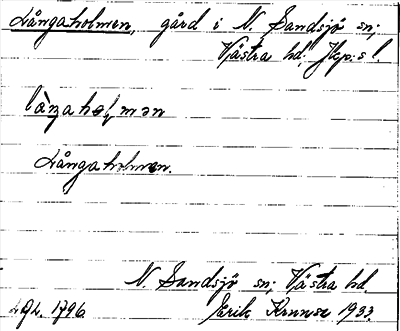 Långaholmen, gård i N. Sandsjö sn;
Västra hd. Jkp:s l.
làŋahɷlmən
Långaholmen.
N. Sandsjö sn; Västra hd.
Erik 1933.